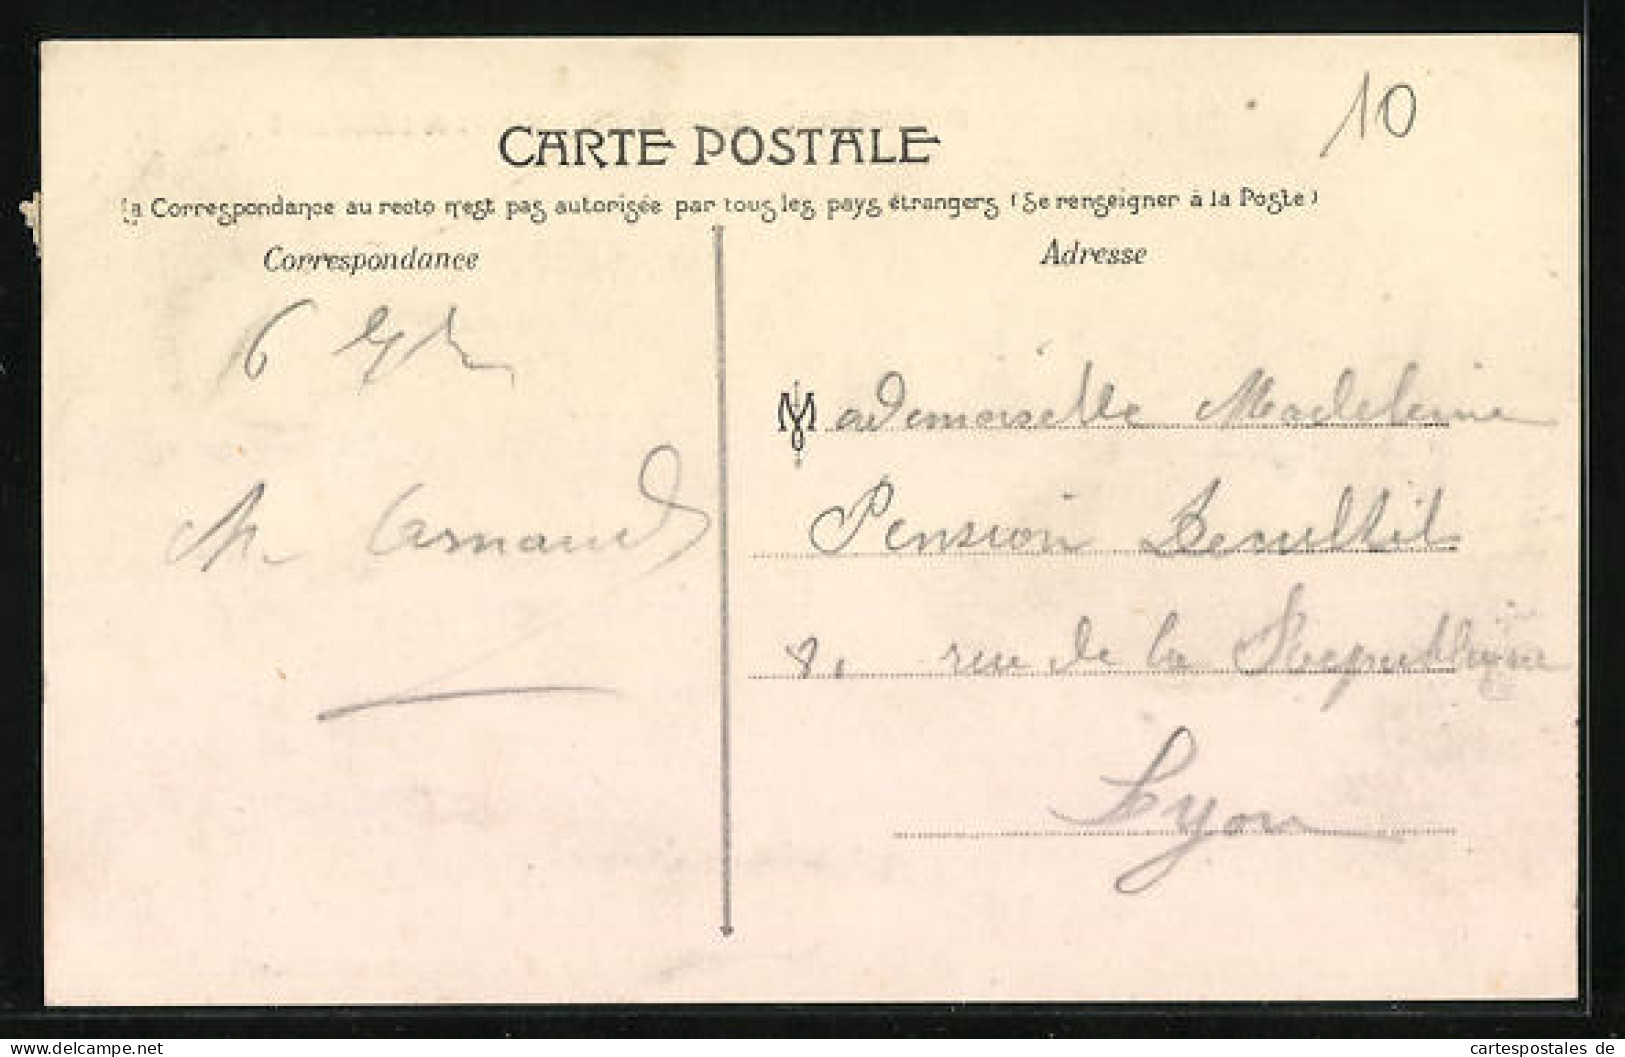 10
CARTE POSTALE
La Correspondance au recto n'est pas autorisée par tous les pays étrangers (Se renseigner à la Poste)
Correspondance
Adresse
6
Mademoiselle Madeleine
M. Arnaud
Pension
rue de la Republique
Lyon
www.delcampe.net
cartespostales de